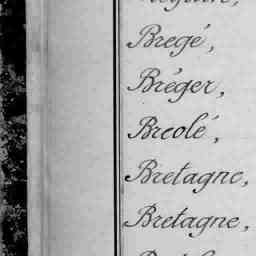 Bregé,
Bréger,
Breolé,
Bretagne,
Bretagne,